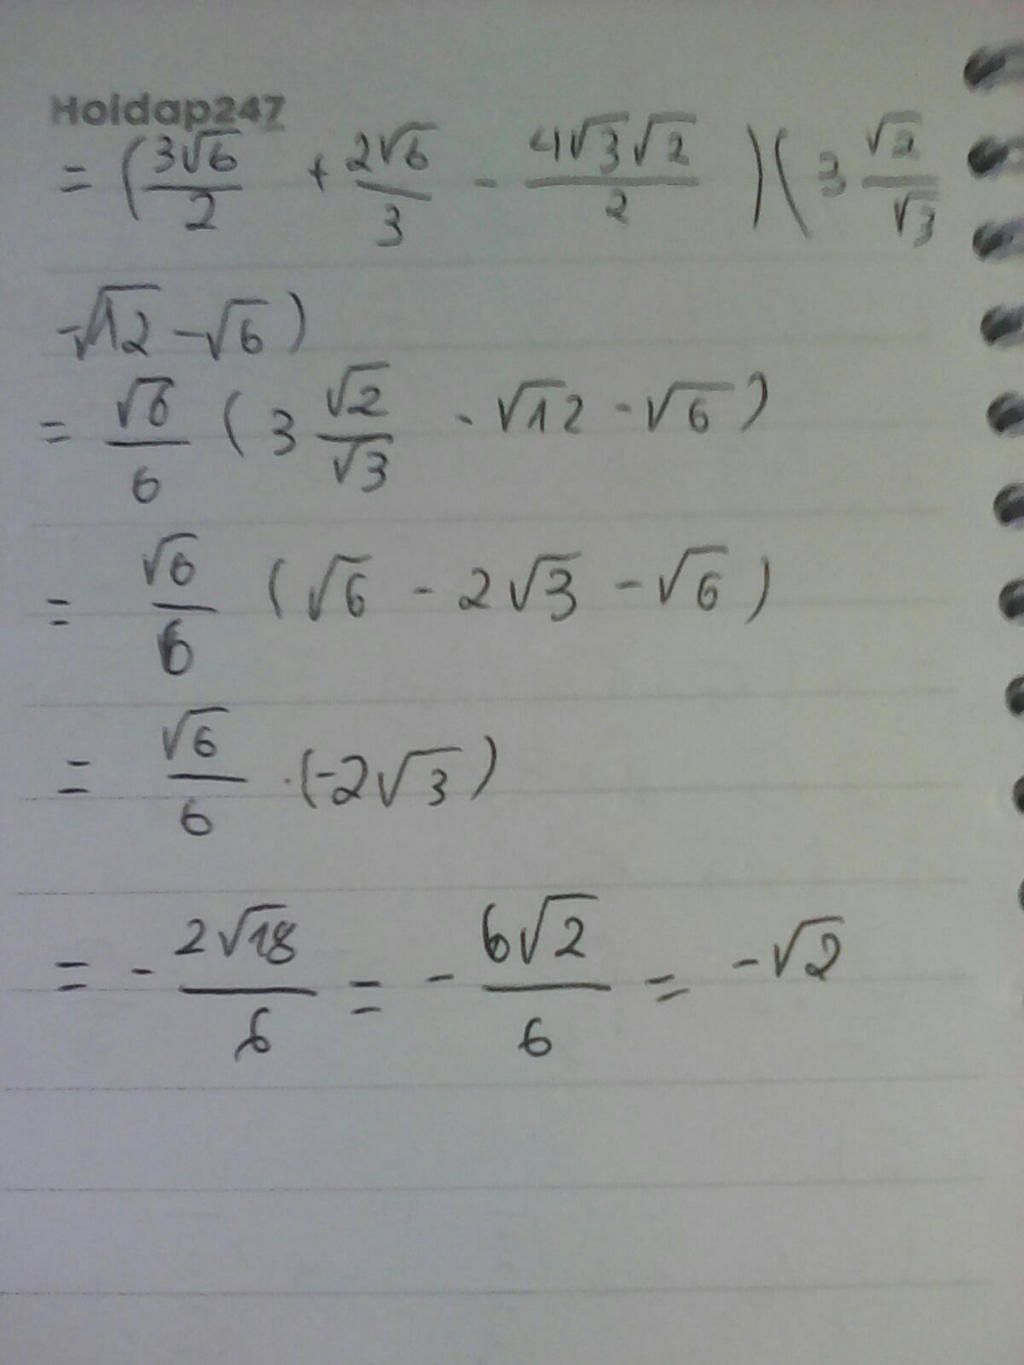 Hoidap247
= (3√6/2 + 2√6/3 - 4√3√2/2)(3 √2/√3
-√12 -√6)
= √6/6 (3 √2/√3 - √12 - √6)
= √6/6 (√6 - 2√3 - √6)
= √6/6 .(-2√3)
= - 2√18/6 = - 6√2/6 = -√2